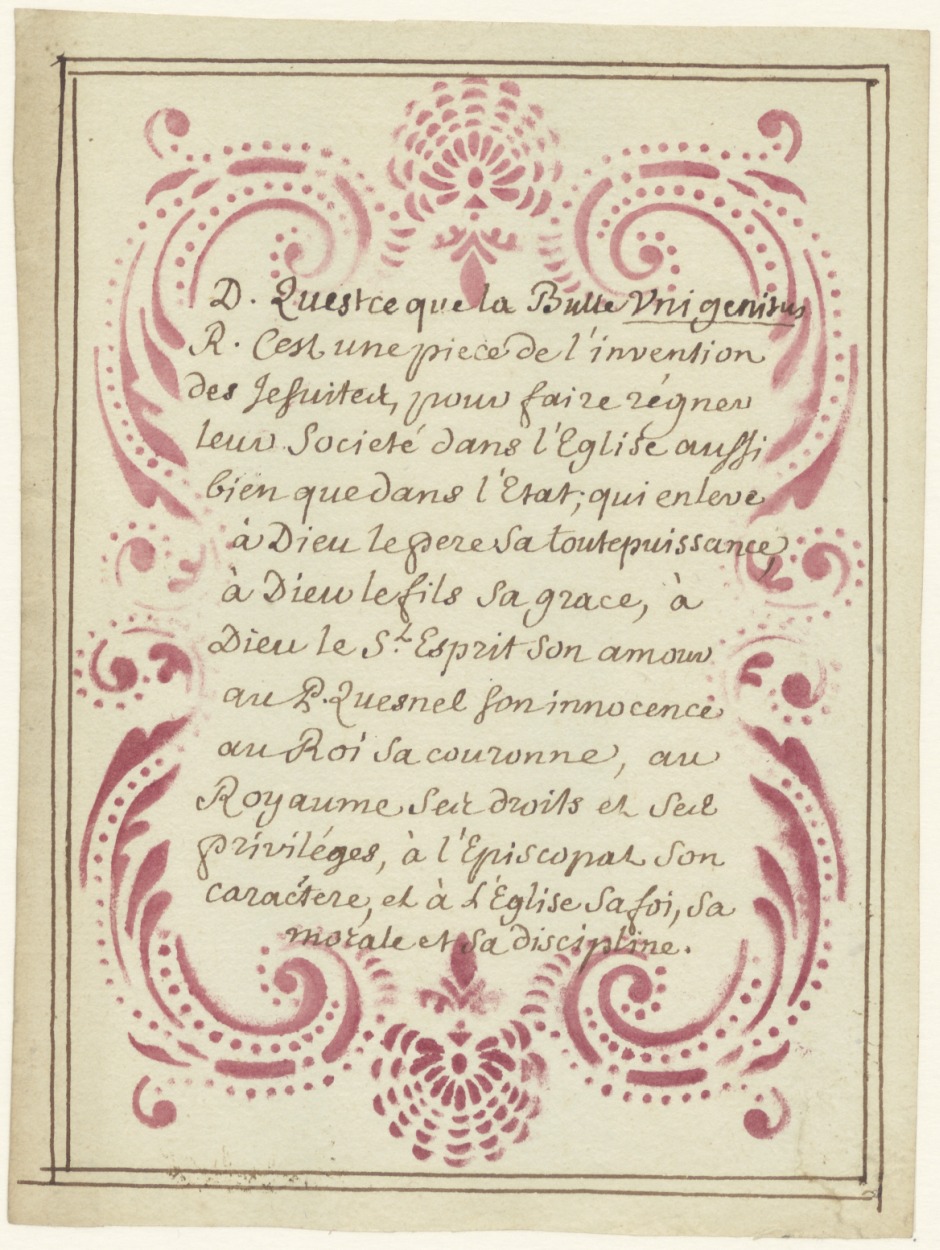 D. Questceque la Bulle Unigenitus
R. Cest une piece de l'invention
des Jesuites, pour faire régner
leur Societé dans l'Eglise aussi
bien que dans l'Etat; qui enleve
à Dieu le pere sa toutepuissance,
à Dieu le fils sa grace, à
Dieu le St. Esprit son amour
au P. Quesnel son innocence
au Roi sa couronne, au
Royaume ses droits et ses
priviléges, à l'Episcopat son
caractere, et à l'Eglise sa foi, sa
morale et sa discipline.